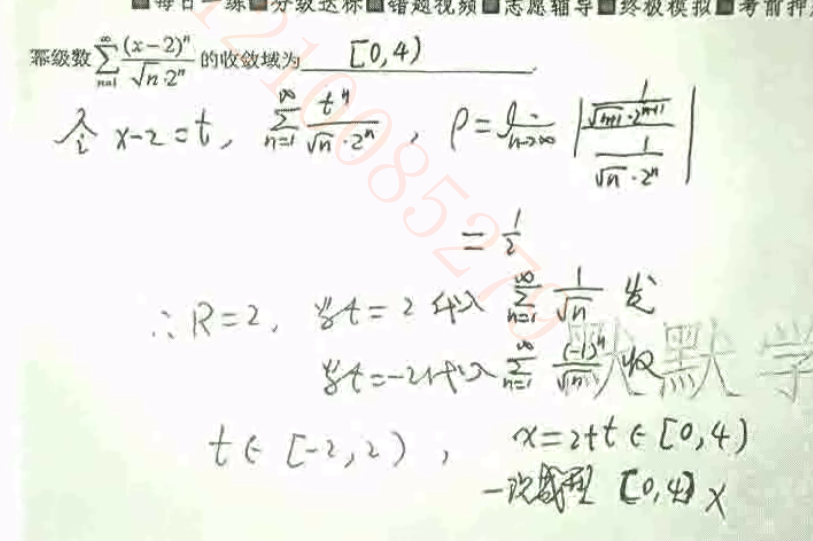 ■每日一练■分级达标■错题视频■志愿辅导■终极模拟■考前押
幂级数 \sum_{n=1}^{\infty} \frac{(x-2)^n}{\sqrt{n} \cdot 2^n} 的收敛域为 [0,4)
令 x-2=t, \sum_{n=1}^{\infty} \frac{t^n}{\sqrt{n} \cdot 2^n}, ρ=\lim_{n→∞} \left| \frac{\frac{1}{\sqrt{n+1} \cdot 2^{n+1}}}{\frac{1}{\sqrt{n} \cdot 2^n}} \right|
= \frac{1}{2}
∴ R=2, 当t=2代入 \sum_{n=1}^{\infty} \frac{1}{\sqrt{n}} 发
当t=-2代入 \sum_{n=1}^{\infty} \frac{(-1)^n}{\sqrt{n}} 收
t∈[-2,2), x=2+t∈[0,4)
[0,4] x
默默学